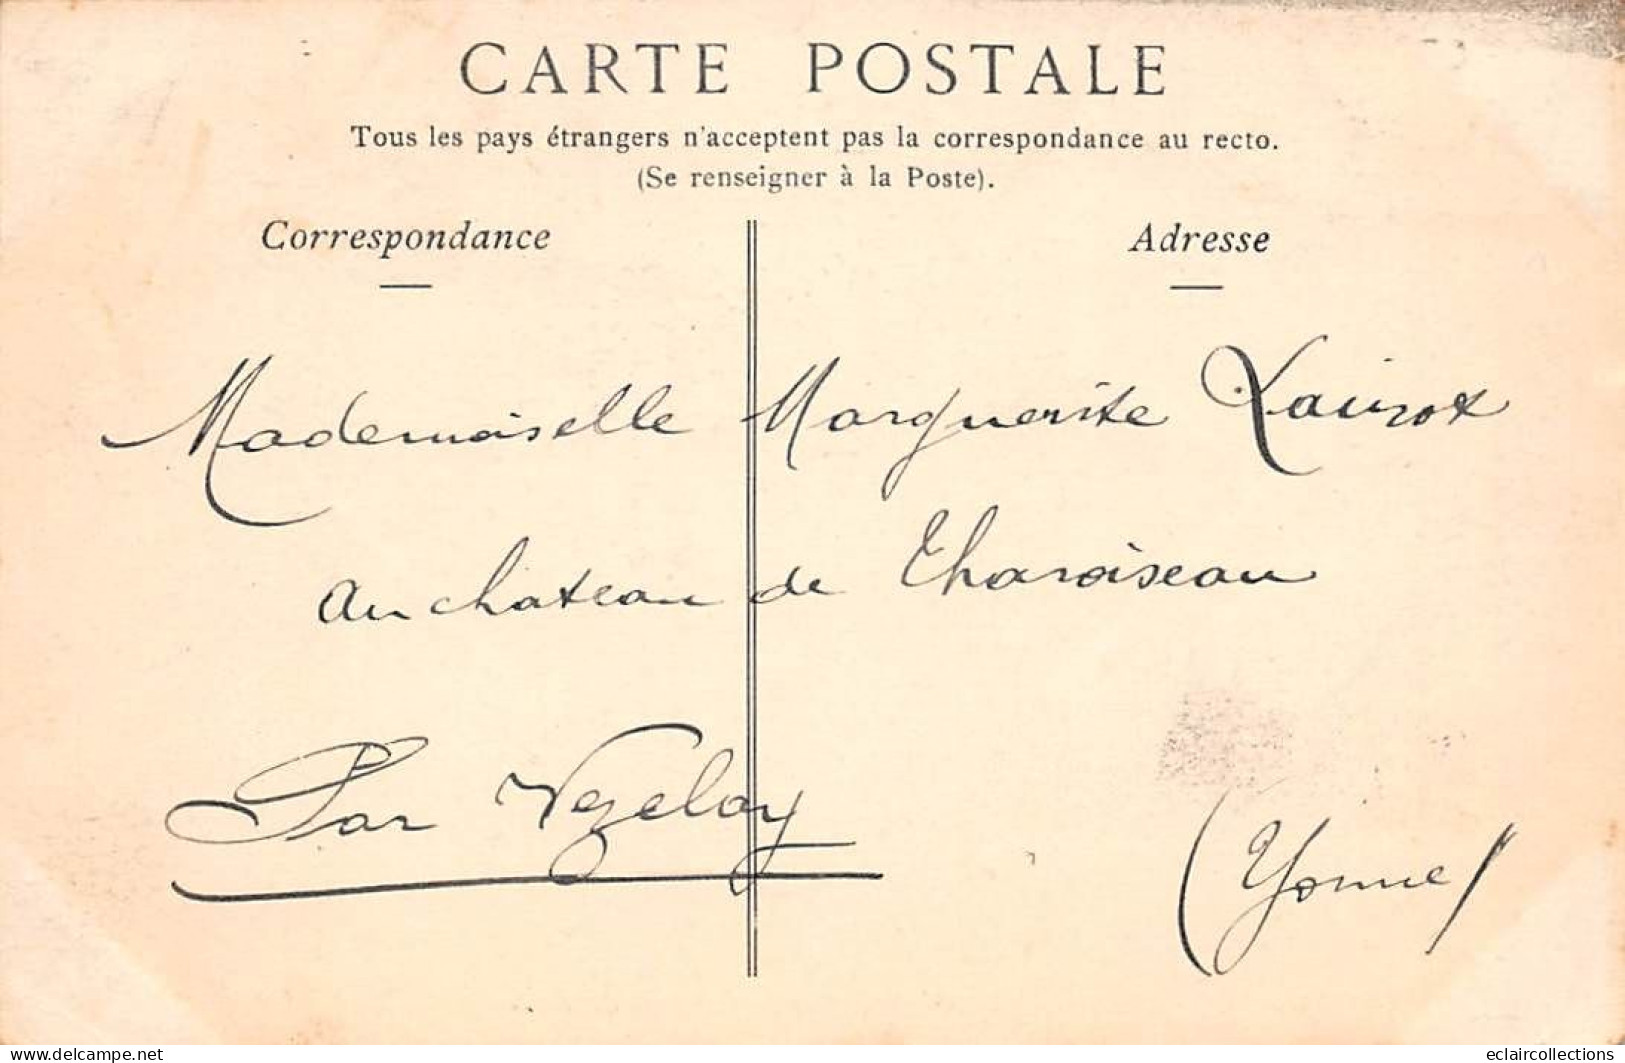 CARTE POSTALE
Tous les pays étrangers n'acceptent pas la correspondance au recto.
(Se renseigner à la Poste).
Correspondance
Adresse
Mademoiselle Marguerite
au chateau de Tharoiseau
Par Vezelay
(Yonne)
delcampe.net
eclaircollections